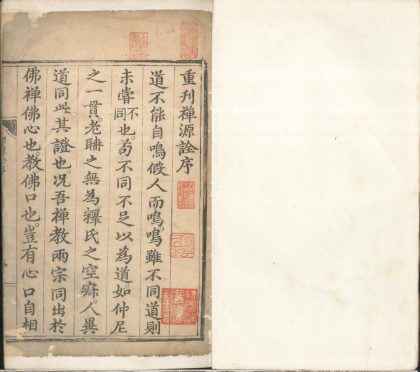 重刊禪源詮序
道不能自鳴假人而鳴鳴雖不同道則
未嘗不同也苟不同不足以為道如仲尼
之一貫老聃之無為釋氏之空寂人異
道同此其證也况吾禪教兩宗同出於
佛禪佛心也教佛口也豈有心口自相